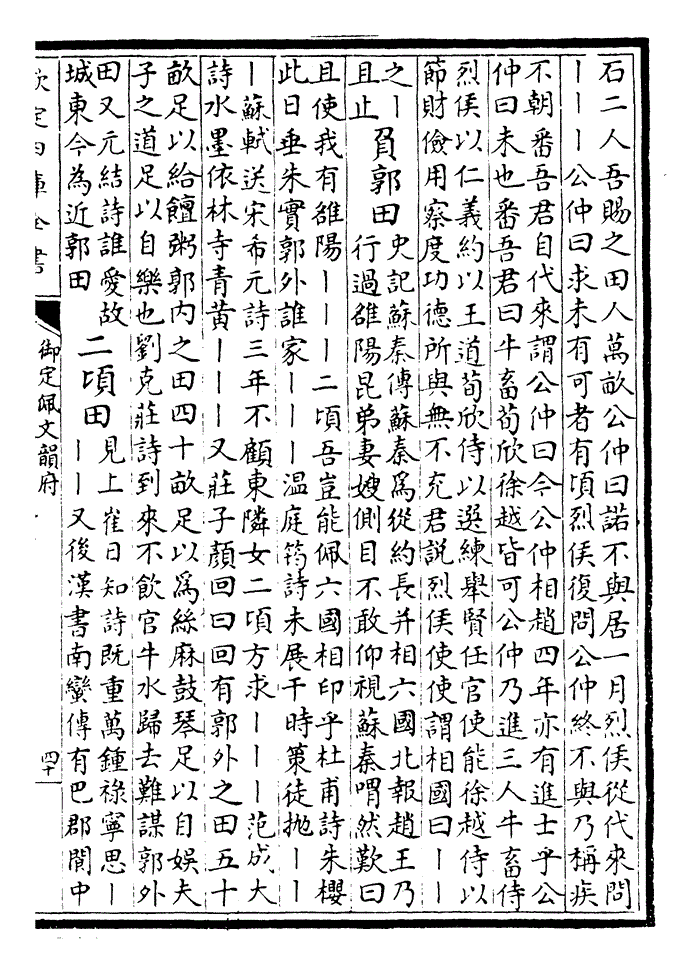 石二人吾賜之田人萬畝公仲曰諾不與居一月烈侯從代來問
｜｜｜公仲曰求未有可者有頃烈侯復問公仲終不與乃稱疾
不朝番吾君自代來謂公仲曰今公仲相趙四年亦有進士乎公
仲曰未也番吾君曰牛畜荀欣徐越皆可公仲乃進三人牛畜侍
烈侯以仁義約以王道荀欣侍以選練舉賢任官使能徐越侍以
節財儉用察度功德所與無不充君説烈侯使使謂相國曰｜｜
之｜
且止
負郭田
史記蘇秦傳蘇秦爲從約長并相六國北報趙王乃
行過雒陽昆弟妻嫂側目不敢仰視蘇秦喟然歎曰
且使我有雒陽｜｜｜二頃吾豈能佩六國相印乎杜甫詩朱櫻
此日垂朱實郭外誰家｜｜｜温庭筠詩未展干時策徒抛｜｜
｜蘇軾送宋希元詩三年不顧東隣女二頃方求｜｜｜范成大
詩水墨依林寺青黄｜｜｜又莊子顔回曰回有郭外之田五十
畝足以給饘粥郭内之田四十畝足以爲絲麻鼓琴足以自娯夫
子之道足以自樂也劉克莊詩到來不飲官牛水歸去難謀郭外
田又元結詩誰愛故
城東今為近郭田
二頃田
見上崔日知詩既重萬鍾祿寧思｜
｜｜又後漢書南蠻傳有巴郡閬中
欽定四庫全書
御定佩文韻府
四十